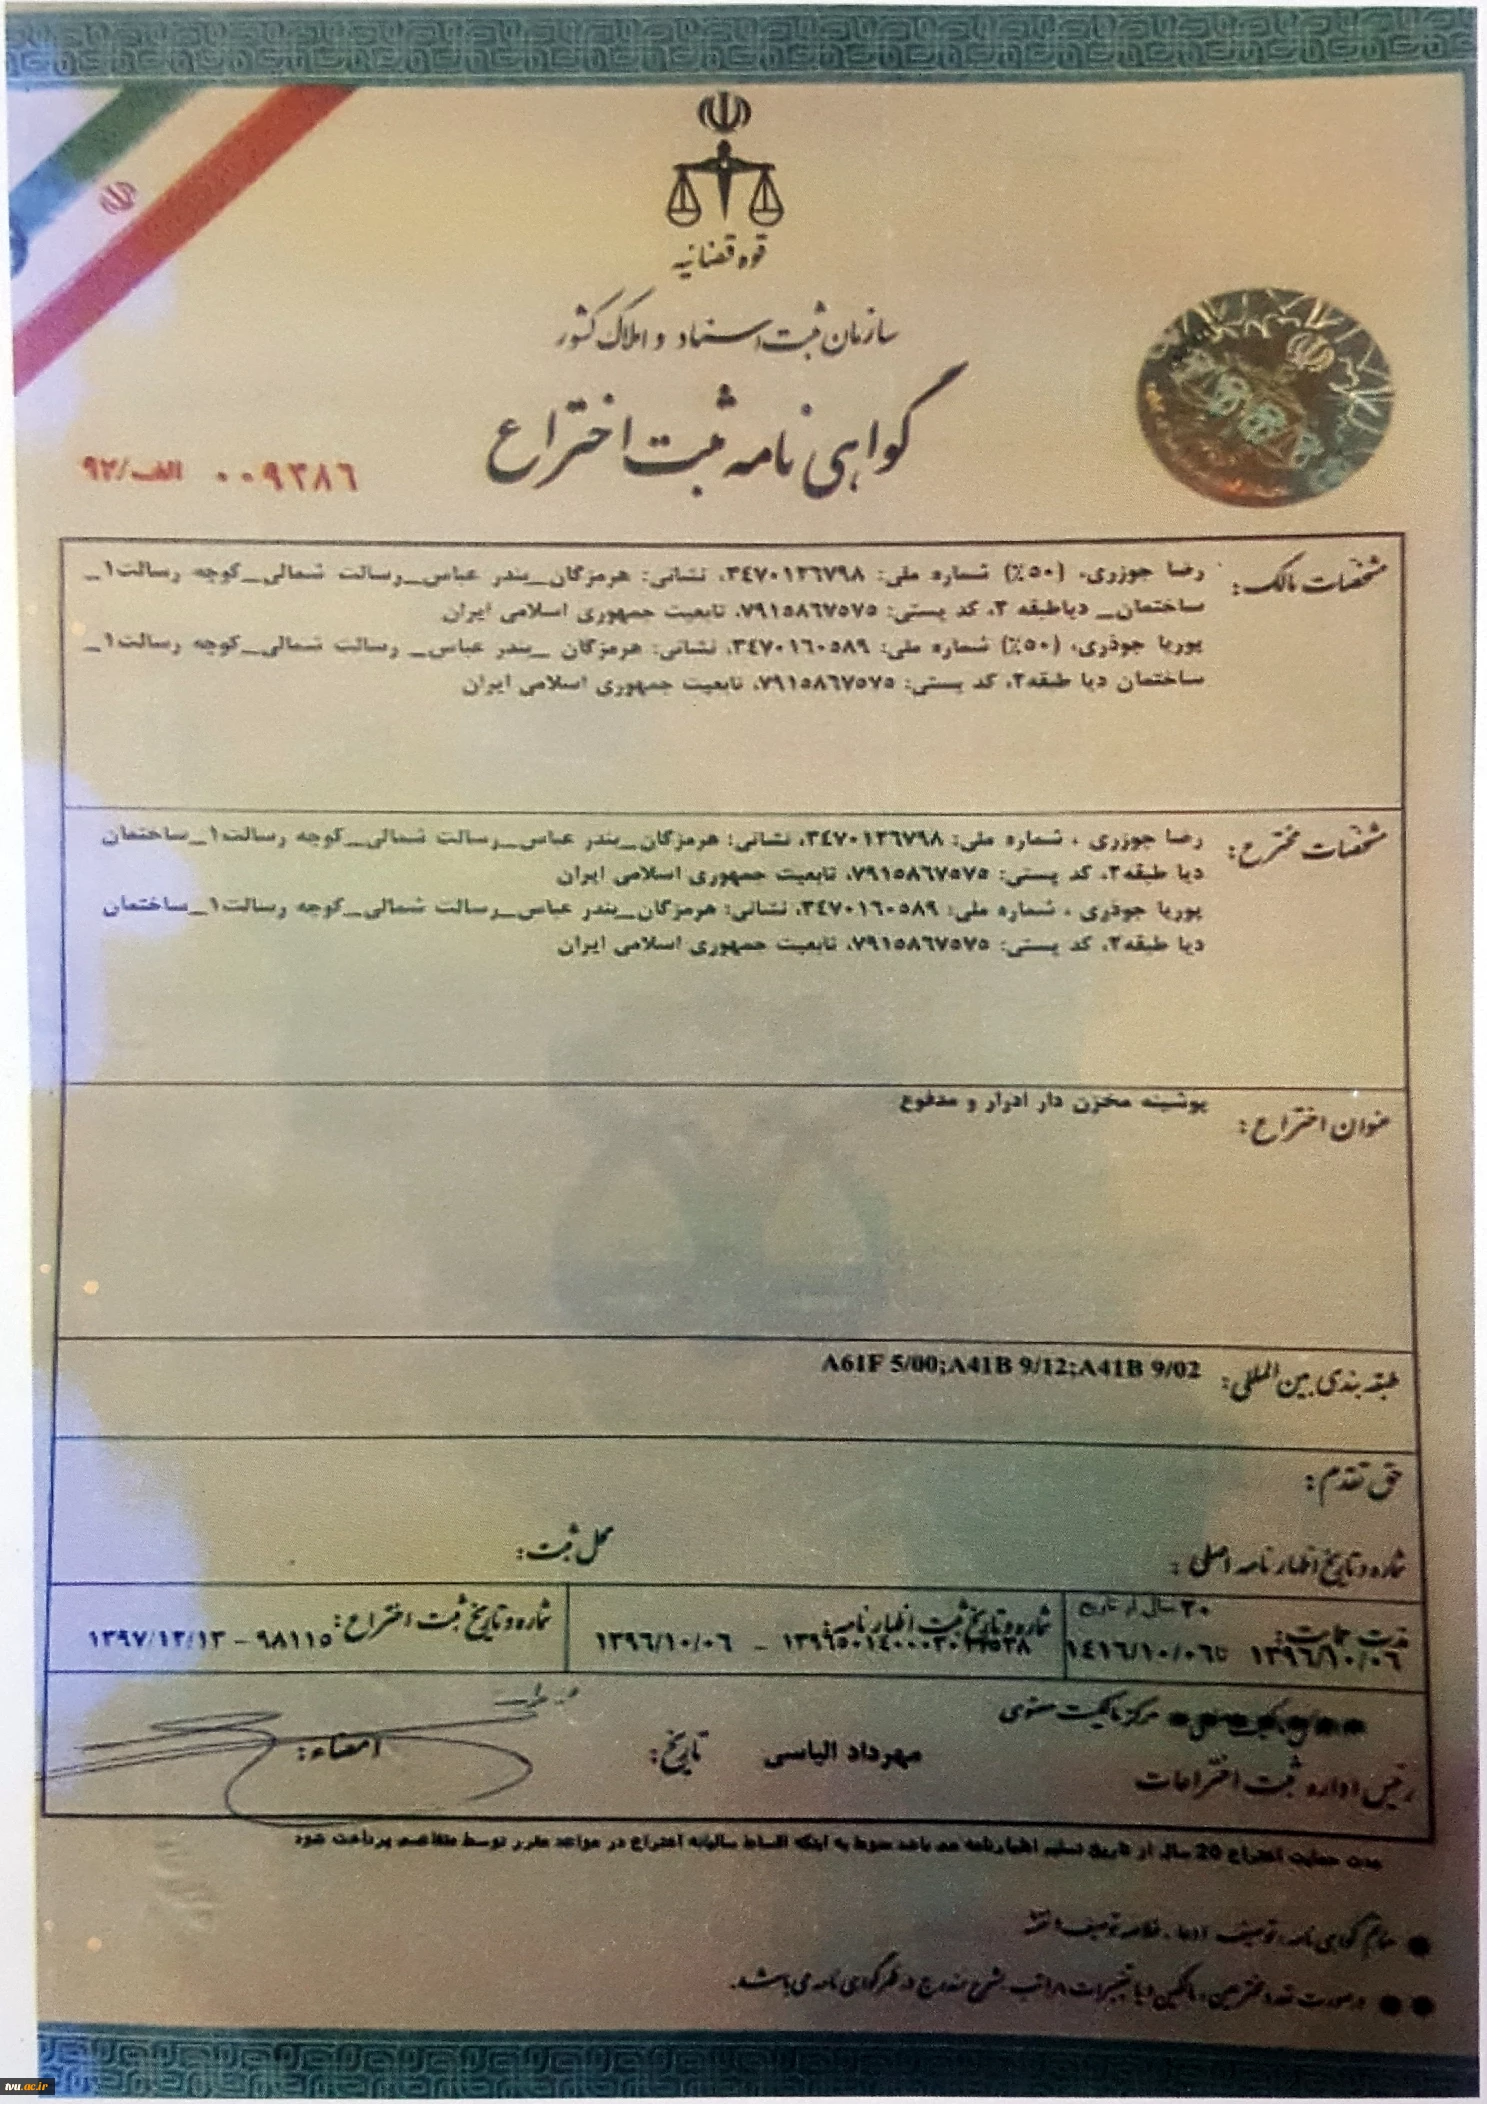 قوه قضائیه
سازمان ثبت اسناد و املاک کشور
گواهی نامه ثبت اختراع
۰۰۹۳۸۶ الف/۹۲
مشخصات مالک: رضا جوزری، (۵۰٪) شماره ملی: ۳٤۷۰۱۳٦۷۹۸، نشانی: هرمزگان_بندر عباس_رسالت شمالی_کوچه رسالت۱_
ساختمان_ دیاطبقه ۲، کد پستی: ۷۹۱۵۸٦۷۵۷۵، تابعیت جمهوری اسلامی ایران
پوریا جوذری، (۵۰٪) شماره ملی: ۳٤۷۰۱٦۰۵۸۹، نشانی: هرمزگان _بندر عباس_ رسالت شمالی_کوچه رسالت۱_
ساختمان دیا طبقه۲، کد پستی: ۷۹۱۵۸٦۷۵۷۵، تابعیت جمهوری اسلامی ایران
مشخصات مخترع: رضا جوزری ، شماره ملی: ۳٤۷۰۱۳٦۷۹۸، نشانی: هرمزگان_بندر عباس_رسالت شمالی_کوچه رسالت۱_ساختمان
دیا طبقه۲، کد پستی: ۷۹۱۵۸٦۷۵۷۵، تابعیت جمهوری اسلامی ایران
پوریا جوذری ، شماره ملی: ۳٤۷۰۱٦۰۵۸۹، نشانی: هرمزگان_بندر عباس_رسالت شمالی_کوچه رسالت۱_ساختمان
دیا طبقه۲، کد پستی: ۷۹۱۵۸٦۷۵۷۵، تابعیت جمهوری اسلامی ایران
عنوان اختراع: پوشینه مخزن دار ادرار و مدفوع
طبقه بندی بین المللی: A61F 5/00;A41B 9/12;A41B 9/02
حق تقدم:
شماره و تاریخ اظهارنامه اصلی: محل ثبت:
مدت حمایت: ۲۰ سال از تاریخ ۱۳۹٦/۱۰/۰٦ تا ۱٤۱٦/۱۰/۰٦
شماره و تاریخ ثبت اظهارنامه: ۱۳۹٦/۱۰/۰٦
شماره و تاریخ ثبت اختراع: ۹۸۱۱۵ - ۱۳۹۷/۱۲/۱۳
مرکز مالکیت معنوی
رئیس اداره ثبت اختراعات مهرداد الیاسی تاریخ: امضاء:
مدت حمایت اختراع 20 سال از تاریخ تسلیم اظهارنامه می باشد منوط به اینکه اقساط سالیانه اختراع در مواعد مقرر توسط متقاضی پرداخت شود
● ضمائم گواهی نامه: توصیف، ادعا، خلاصه توصیف، نقشه
●● درصورت تعدد مخترعین، مالکین و یا تغییرات مراتب بشرح مندرج در ظهر گواهی نامه می باشد.
tvu.ac.ir